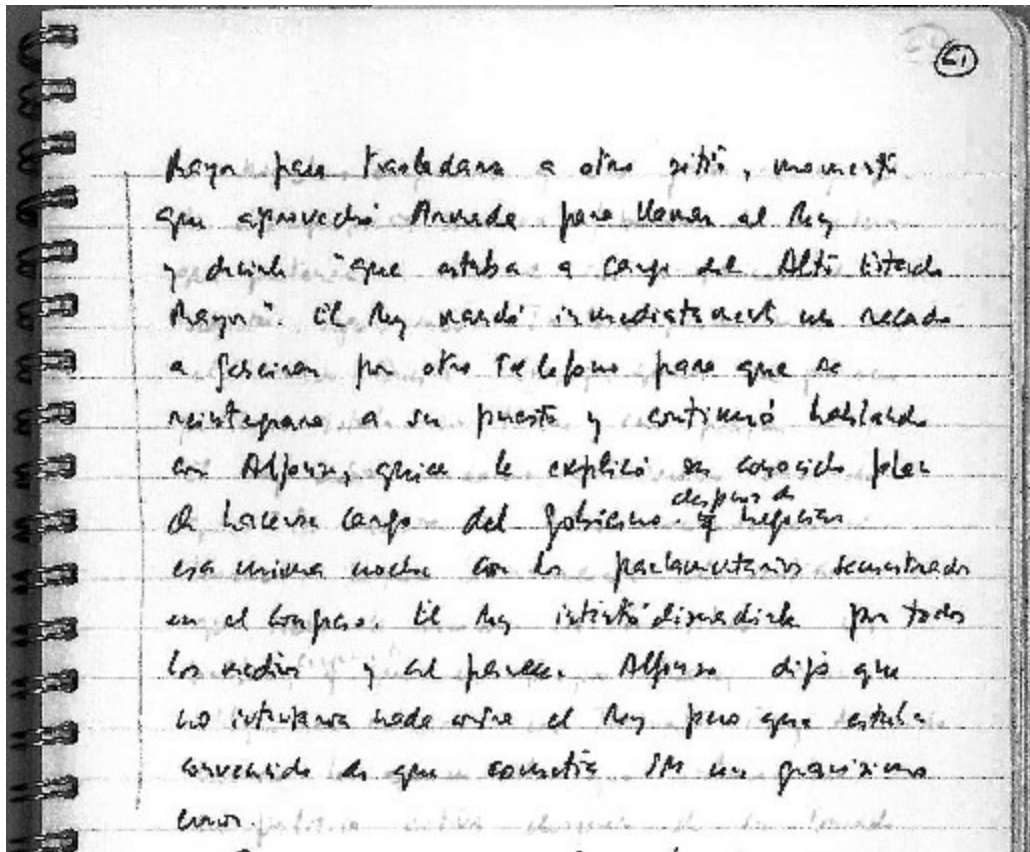 61
Mayor para trasladarse a otro sitio, momento
que aprovechó Armada para llamar al Rey
y decirle "que estaba a cargo del Alto Estado
Mayor". El Rey mandó inmediatamente un recado
a Gabeiras por otro Telefono para que se
reintegrara a su puesto y continuó hablando
con Alfonso, quien le explicó su conocido plan
de hacerse cargo del Gobierno. después de negociar
esa misma noche con los parlamentarios secuestrados
en el Congreso. El Rey intentó disuadirle por todos
los medios y al parecer Alfonso dijo que
no intentaría nada contra el Rey pero que estaba
convencido de que cometía SM un gravísimo
error.